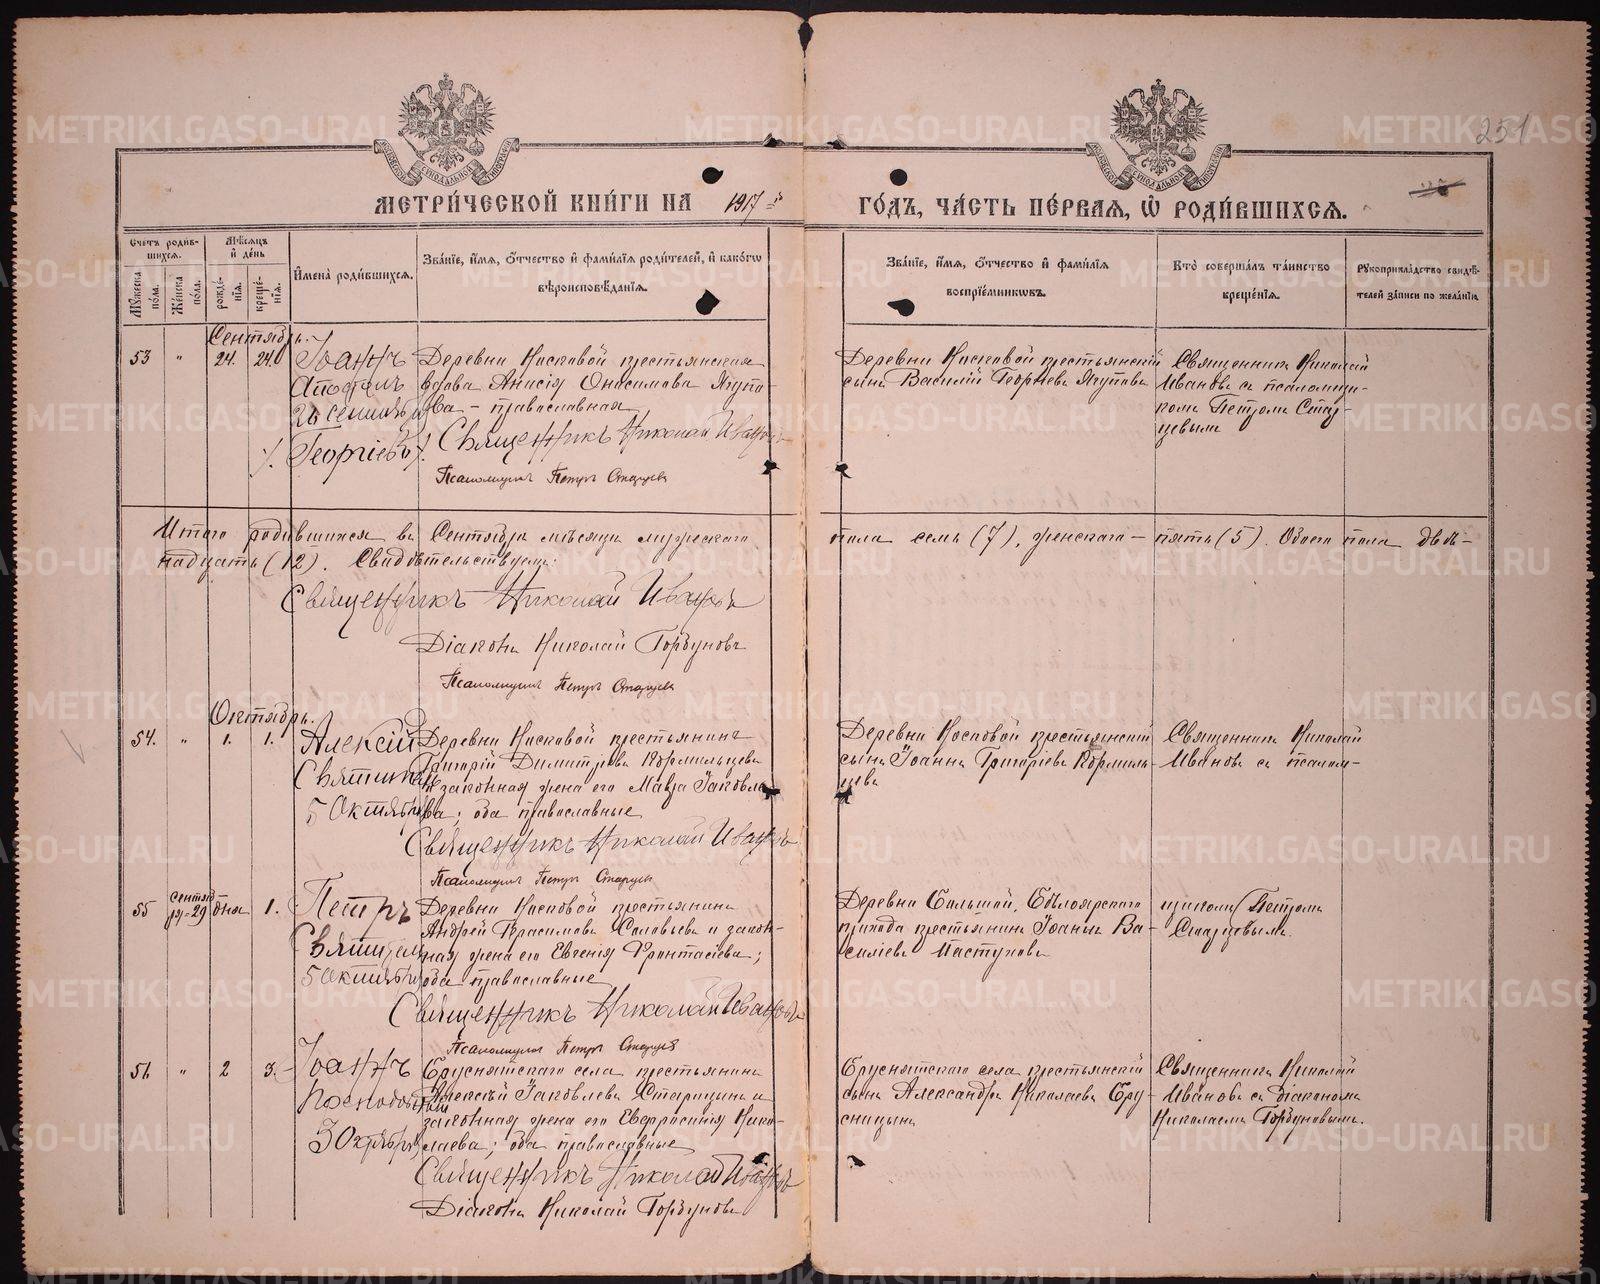 251
МОСКОВСКОЙ СѴНОДАЛЬНОЙ ТИПОГРАФІИ
МЕТРИ́ЧЕСКОЙ КНИ́ГИ НА 1917 й
ГО́ДЪ, ЧА́СТЬ ПЕ́РВАЯ, Ѡ҆ РОДИ́ВШИХСЯ.
Счетъ родив-
шихся.
Мѣсяцъ
и день
Мужеска пола.
Женска пола.
рожде-
нія.
креще-
нія.
Имена родившихся.
Званіе, имя, отчество и фамилія родителей, и какогѡ
вѣроисповѣданія.
Званіе, имя, отчество и фамилія
воспріемниковъ.
Кто совершалъ таинство
крещенія.
Рукоприкладство свидѣ-
телей записи по желанію.
Сентябрь.
53 " 24. 24.
Іоаннъ
Апостолъ
26 сентября
/. Георгіевъ /.
Деревни Носковой крестьянская
вдова Анисія Онисимова Ягупо-
ва – православная
Священникъ Николай Ивановъ
Псаломщикъ Петръ Старцевъ
Деревни Носковой крестьянскій
сынъ Василій Георгіевъ Ягуповъ
Священникъ Николай
Ивановъ съ псаломщи-
комъ Петромъ Стар-
цевымъ
Итого родившихся въ Сентябрѣ мѣсяцѣ мужескаго пола семь (7), женскаго – пять (5). Обоего пола двѣ-
надцать (12). Свидѣтельствуемъ:
Священникъ Николай Ивановъ
Діаконъ Николай Горбуновъ
Псаломщикъ Петръ Старцевъ
Октябрь.
54. " 1. 1.
Алексій
Святитель
5 Октября
Деревни Носковой крестьянинъ
Григорій Димитріевъ Кормильцевъ
и законная жена его Мавра Іаковле-
ва; оба православные
Священникъ Николай Ивановъ
Псаломщикъ Петръ Старцевъ
Деревни Носковой крестьянскій
сынъ Іоаннъ Григоріевъ Кормиль-
цевъ
Священникъ Николай
Ивановъ съ псалом-
55 сентяб-
ря – 29 дня 1.
Петръ
Святитель
5 Октября
Деревни Носковой крестьянинъ
Андрей Герасимовъ Соловьевъ и закон-
ная жена его Евгенія ;
оба православные
Священникъ Николай Ивановъ
Псаломщикъ Петръ Старцевъ
Деревни Большой, Бѣлоярскаго
прихода крестьянинъ Іоаннъ Ва-
силіевъ Пастуховъ
щикомъ Петромъ
Старцевымъ.
56 " 2 3.
Іоаннъ
Преподобный
3 Октября
Бруснятскаго села крестьянинъ
Алексій Іаковлевъ Старицынъ и
законная жена его Евфросинія Нико-
лаева; оба православные
Священникъ Николай Ивановъ
Діаконъ Николай Горбуновъ
Бруснятскаго села крестьянскій
сынъ Александръ Николаевъ Бру-
сницынъ
Священникъ Николай
Ивановъ съ Діакономъ
Николаемъ Горбуновымъ.
METRIKI.GASO-URAL.RU